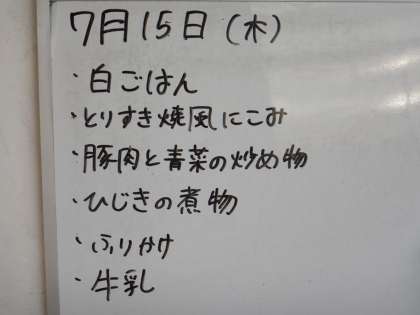 7月15日(木)
・白ごはん
・とりすき焼風にこみ
・豚肉と青菜の炒め物
・ひじきの煮物
・ふりかけ
・牛乳